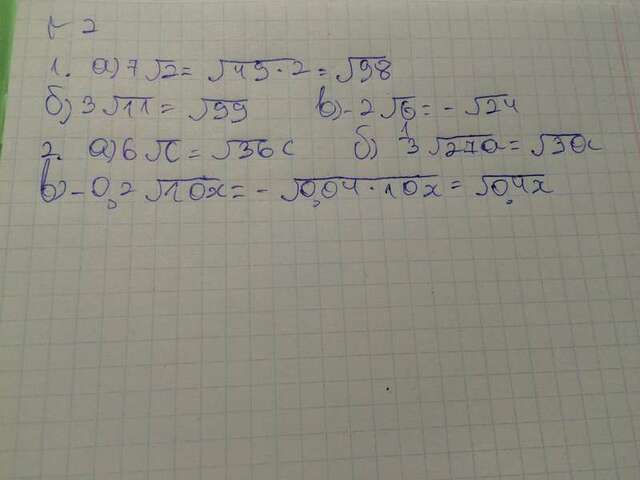 г 2
1. а) 7√2 = √49·2 = √98
б) 3√11 = √99 в) -2√6 = -√24
2. а) 6√c = √36c б) 1/3√27a = √3a
в) -0,2√10x = -√0,04·10x = √0,4x